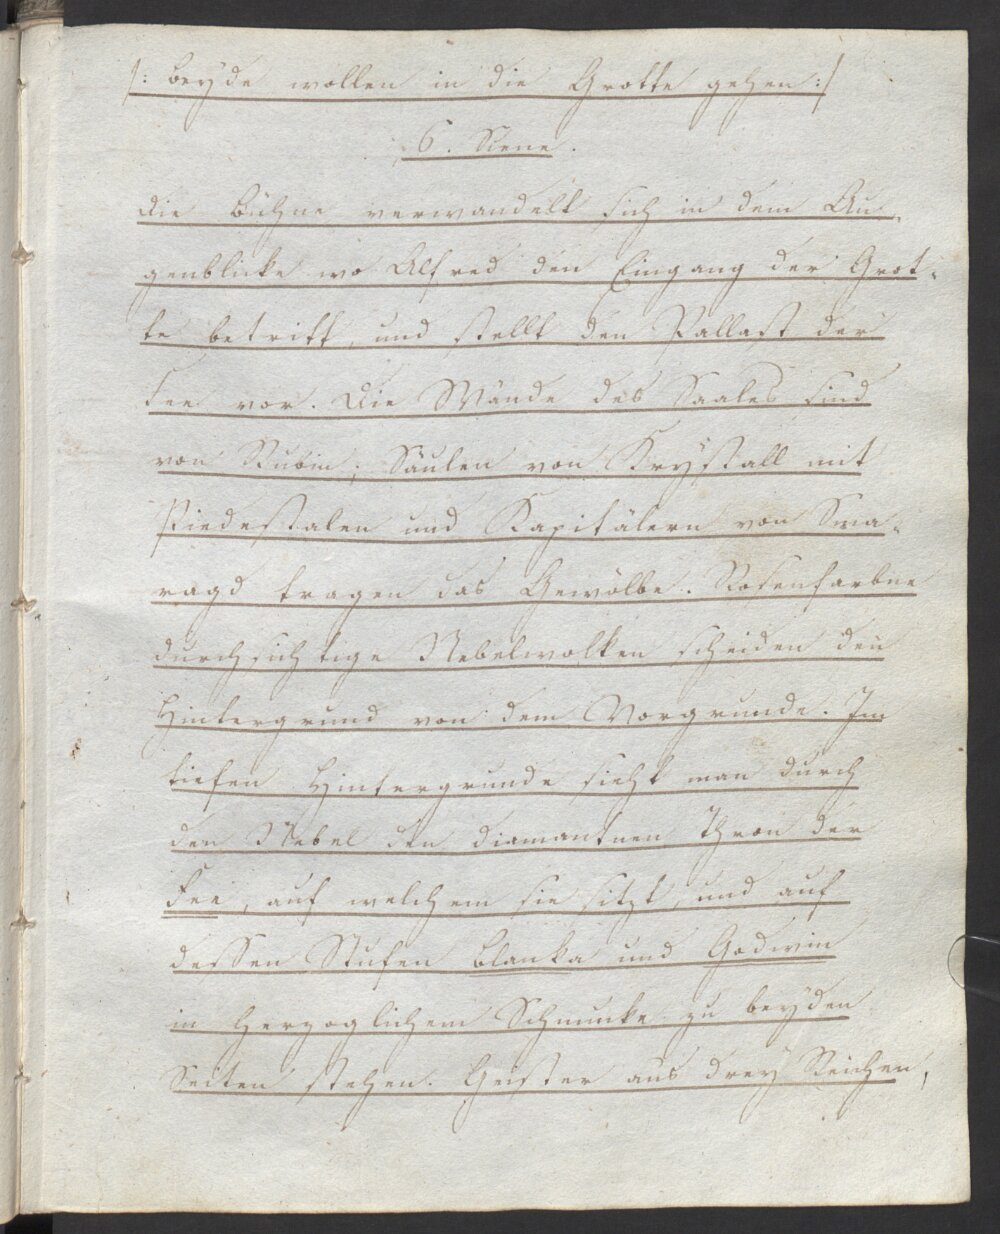 /: beyde wollen in die Grotte gehen :/
6. Scene.
Die Bühne verwandelt sich in dem Au-
genblicke wo Alfred den Eingang der Grot-
te betritt, und stellt den Pallast der
Fee vor. Die Wände des Saales sind
von Rubin; Säulen von Krystall mit
Piedestalen und Kapitälern von Sma-
ragd tragen das Gewölbe. Rosenfarbne
durchsichtige Nebelwolken scheiden den
Hintergrund von dem Vorgrunde. Im
tiefen Hintergrunde sieht man durch
den Nebel den diamantnen Thron der
Fee, auf welchem sie sitzt, und auf
dessen Stufen Blanka und Godwin
in herzoglichem Schmucke zu beyden
Seiten stehen. Geister aus drey Reichen,